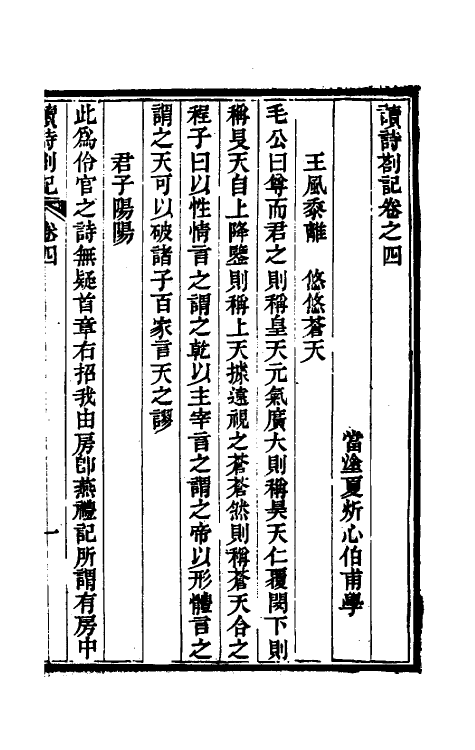 讀詩劄記卷之四
當塗夏炘心伯甫學
王風黍離　悠悠蒼天
毛公曰尊而君之則稱皇天元氣廣大則稱昊天仁覆閔下則
稱旻天自上降鑒則稱上天據遠視之蒼蒼然則稱蒼天合之
程子曰以性情言之謂之乾以主宰言之謂之帝以形體言之
謂之天可以破諸子百家言天之謬
君子陽陽
此爲伶官之詩無疑首章右招我由房卽燕禮記所謂有房中
讀詩劄記　卷四　一